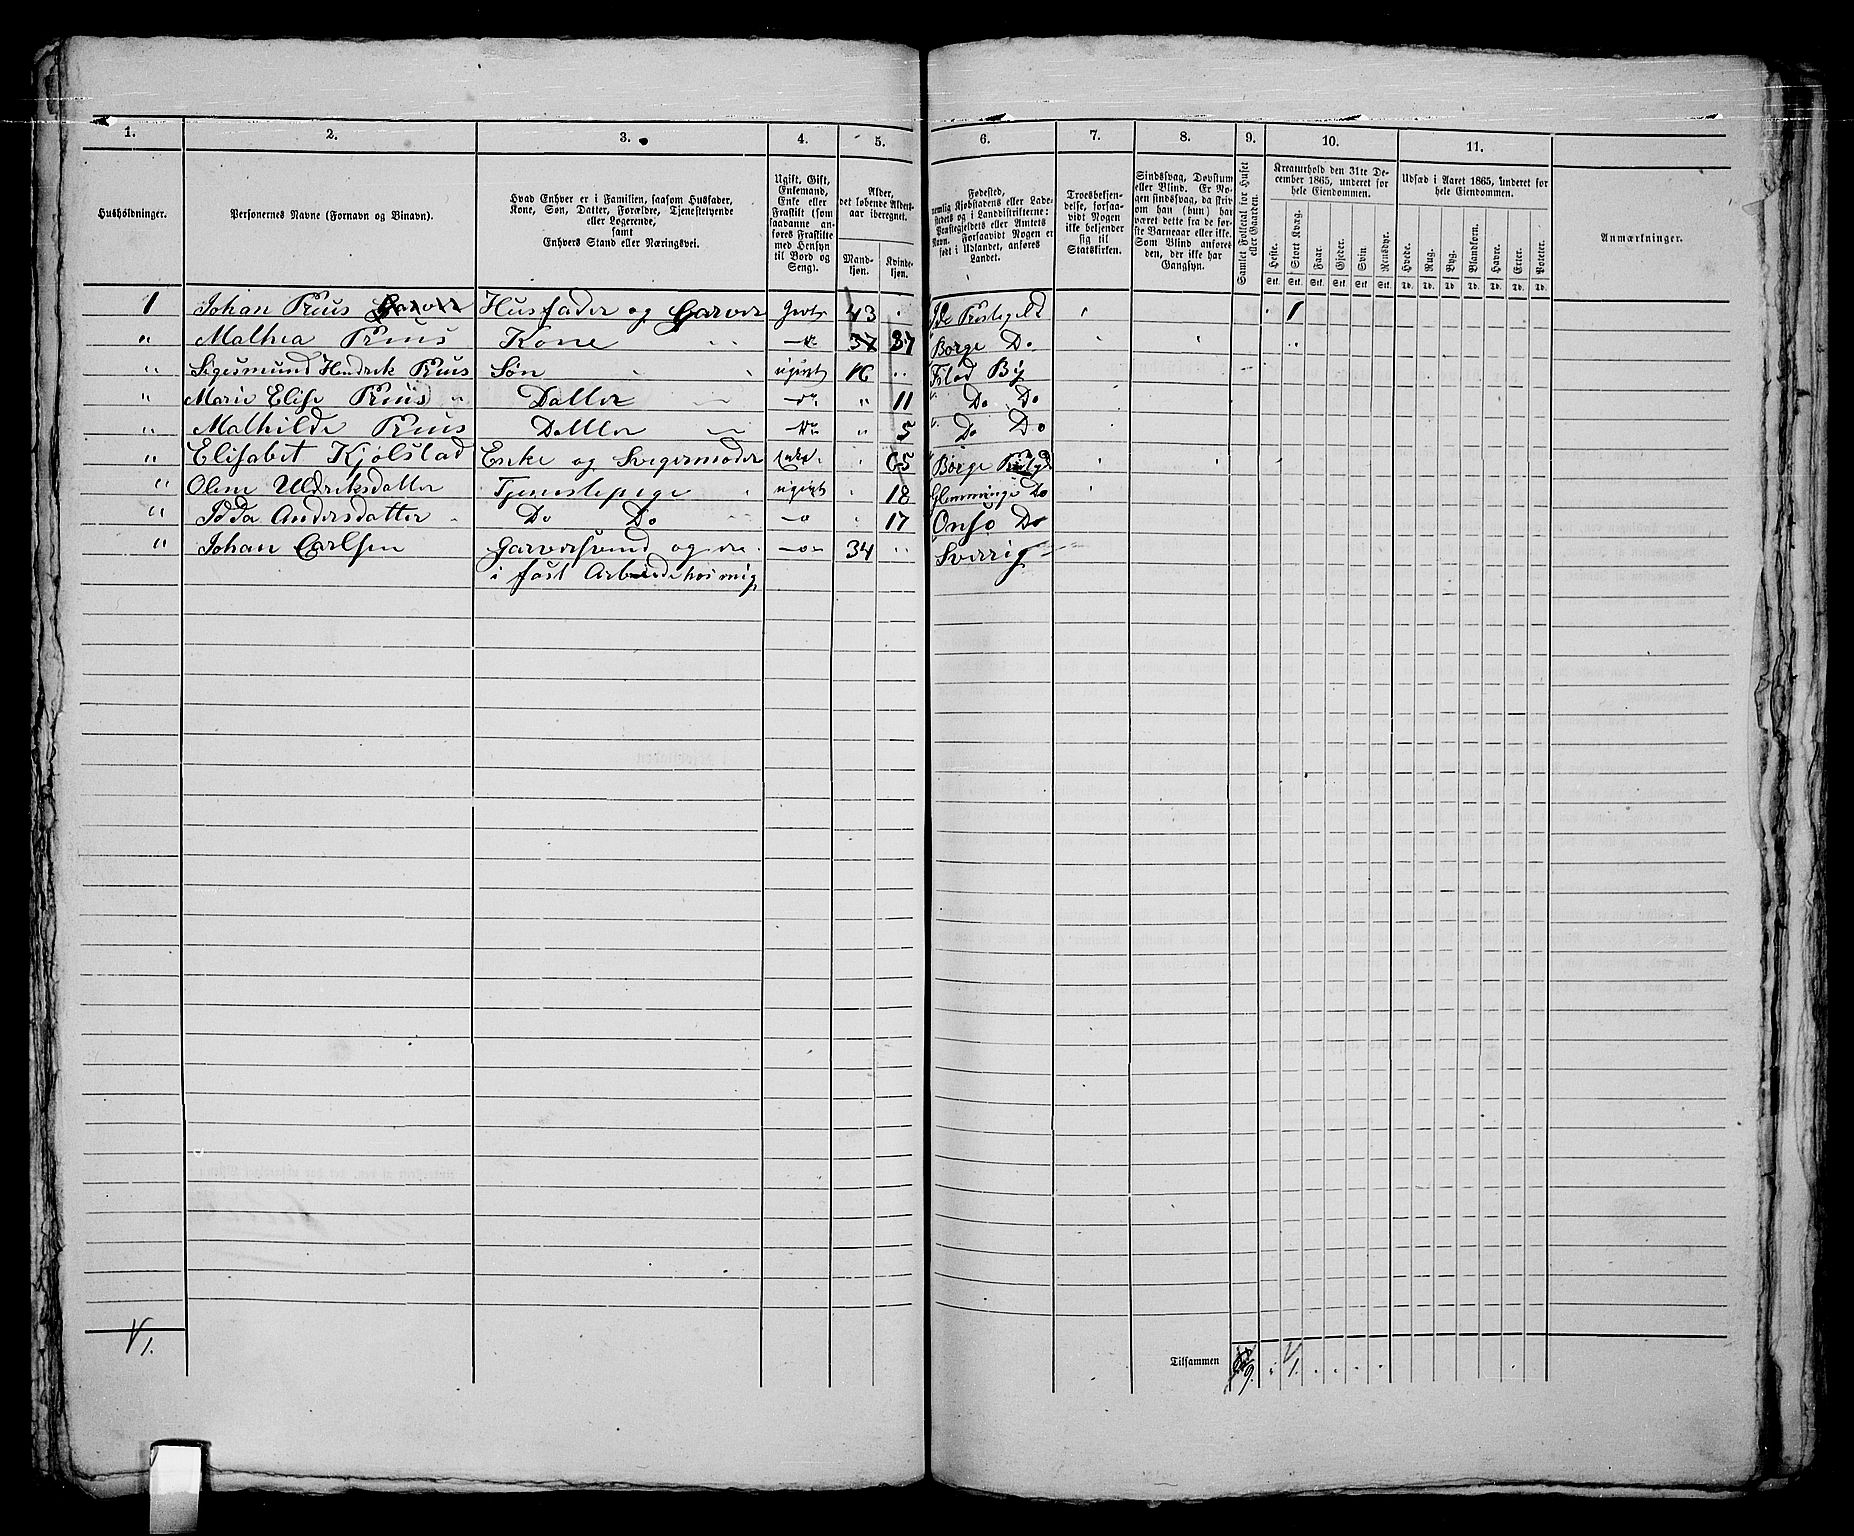 1. 2. 3. 4. 5. 6. 7. 8. 9. 10. 11.
Husholdninger.
Personernes Navne (Fornavn og Binavn).
Hvad Enhver er i Familien, saasom Husfader,
Kone, Søn, Datter, Forældre, Tjenestetyende
eller Logerende,
samt
Enhvers Stand eller Næringsvei.
Ugift, Gift,
Enkemand,
Enke eller
Fraskilt (som
saadanne an-
føres Fraskilte
med Hensyn
til Bord og
Seng).
Alder,
det løbende Alders-
aar iberegnet.
Mand-
kjøn.
Kvinde-
kjøn.
Fødested,
nemlig Kjøbstadens eller Lade-
stedets og i Landdistrikterne:
Præstegjeldets eller Amtets
Navn. Forsaavidt Nogen er
født i Udlandet, anføres
Landet.
Troesbekjen-
delse, forsaa-
vidt Nogen
ikke bekjender
sig til
Statskirken.
Sindssvag, Døvstum
eller Blind. Er No-
gen sindssvag, da skriv
om han (hun) har
været dette fra de før-
ste Barneaar eller ikke.
Som Blind anføres
den, der ikke har
Gangsyn.
Samlet Folketal for Huset
eller Gaarden.
Kreaturhold den 31te De-
cember 1865, underet for
hele Eiendommen.
Heste. Stort Kvæg. Faar. Gjeder. Svin. Rensdyr.
Stk. Stk. Stk. Stk. Stk. Stk.
Udsæd i Aaret 1865, underet for
hele Eiendommen.
Hvede. Rug. Byg. Blandkorn. Havre. Erter. Poteter.
Td. Td. Td. Td. Td. Td. Td.
Anmærkninger.
1 Johan Prüs Garver Husfader og Garver Givt 43 Ide Prestegeld 1
" Mathea Prüs Kone 37 37 Borge Do
" Sigesmund Hendrik Prüs Søn ugivt 16 Fstad By
" Marie Elise Prüs Datter do " 11 Do Do
" Mathilde Prüs Datter " 5 Do Do
" Elisabet Kjølstad Enke og Svigermoder Enke 65 Borge
" Oline Uldriksdatter Tjenestepige ugivt 18 Glemminge Do
" Idda Andersdatter Do Do 17 Onsø Do
" Johan Carlsen Garversvend og er 34 Sverrig
i fast Arbeide hos mig
1.
Tilsammen 9. 1.